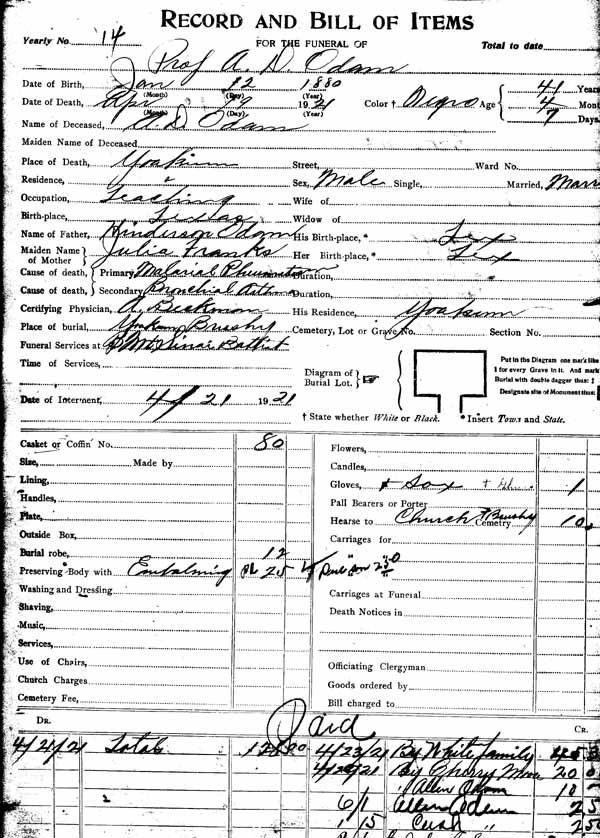 RECORD AND BILL OF ITEMS
Yearly No. 14 FOR THE FUNERAL OF Total to date
Prof A. D. Odam
Date of Birth, Jan 12 1880 41 Years
(Month) (Day) (Year)
Date of Death, Apr 19 1921 Color † Negro Age 4 Mont
(Month) (Day) (Year) 7 Days
Name of Deceased, A. D. Odam
Maiden Name of Deceased
Place of Death, Yoakum Street, Ward No.
Residence, " Sex, Male Single, Married, Marri
Occupation, Teaching Wife of
Birth-place, Texas Widow of
Name of Father, Hinderson Odam His Birth-place,* Tex
Maiden Name of Mother Julia Franks Her Birth-place,* Tex
Cause of death, Primary Malarial Duration,
Cause of death, Secondary Bronchial Asthma Duration,
Certifying Physician, A. Beckman His Residence, Yoakum
Place of burial, Yoakum Brushy Cemetery, Lot or Grave No. Section No.
Funeral Services at Mt Sinai Babtist
Time of Services,
Diagram of Burial Lot.
Put in the Diagram one mark like
for every Grave in it. And mark
Burial with double dagger thus: ‡
Designate site of Monument thus:
Date of Interment, 4/21 1921
† State whether White or Black. * Insert Town and State.
Casket or Coffin No. 80 Flowers,
Size, Made by Candles,
Lining, Gloves, + Sox 1
Handles, Pall Bearers or Porter
Plate, Hearse to Church + Brushy Cemetry 10
Outside Box, Carriages for
Burial robe, 12
Preserving Body with Embalming 25
Washing and Dressing Carriages at Funeral
Shaving, Death Notices in
Music,
Services,
Use of Chairs, Officiating Clergyman
Church Charges Goods ordered by
Cemetery Fee, Bill charged to
DR. Paid CR.
4/21/21 Total 4/23/21 By White family
By 20
" Allen Odom 10
6/1 Allen Odem 25
" 15 Cash " 25